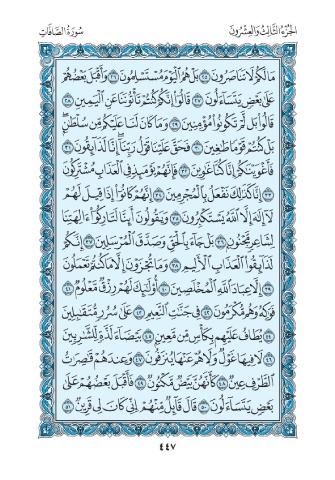 الجزء الثالث والعشرون سورة الصافات
مَا لَكُمْ لَا تَنَاصَرُونَ ۝٢٥ بَلْ هُمُ الْيَوْمَ مُسْتَسْلِمُونَ ۝٢٦ وَأَقْبَلَ بَعْضُهُمْ
عَلَىٰ بَعْضٍ يَتَسَاءَلُونَ ۝٢٧ قَالُوا إِنَّكُمْ كُنْتُمْ تَأْتُونَنَا عَنِ الْيَمِينِ ۝٢٨
قَالُوا بَلْ لَمْ تَكُونُوا مُؤْمِنِينَ ۝٢٩ وَمَا كَانَ لَنَا عَلَيْكُمْ مِنْ سُلْطَانٍ ۖ
بَلْ كُنْتُمْ قَوْمًا طَاغِينَ ۝٣٠ فَحَقَّ عَلَيْنَا قَوْلُ رَبِّنَا ۖ إِنَّا لَذَائِقُونَ ۝٣١
فَأَغْوَيْنَاكُمْ إِنَّا كُنَّا غَاوِينَ ۝٣٢ فَإِنَّهُمْ يَوْمَئِذٍ فِي الْعَذَابِ مُشْتَرِكُونَ
۝٣٣ إِنَّا كَذَٰلِكَ نَفْعَلُ بِالْمُجْرِمِينَ ۝٣٤ إِنَّهُمْ كَانُوا إِذَا قِيلَ لَهُمْ
لَا إِلَٰهَ إِلَّا اللَّهُ يَسْتَكْبِرُونَ ۝٣٥ وَيَقُولُونَ أَئِنَّا لَتَارِكُو آلِهَتِنَا
لِشَاعِرٍ مَجْنُونٍ ۝٣٦ بَلْ جَاءَ بِالْحَقِّ وَصَدَّقَ الْمُرْسَلِينَ ۝٣٧ إِنَّكُمْ
لَذَائِقُو الْعَذَابِ الْأَلِيمِ ۝٣٨ وَمَا تُجْزَوْنَ إِلَّا مَا كُنْتُمْ تَعْمَلُونَ
۝٣٩ إِلَّا عِبَادَ اللَّهِ الْمُخْلَصِينَ ۝٤٠ أُولَٰئِكَ لَهُمْ رِزْقٌ مَعْلُومٌ ۝٤١
فَوَاكِهُ وَهُمْ مُكْرَمُونَ ۝٤٢ فِي جَنَّاتِ النَّعِيمِ ۝٤٣ عَلَىٰ سُرُرٍ مُتَقَابِلِينَ
۝٤٤ يُطَافُ عَلَيْهِمْ بِكَأْسٍ مِنْ مَعِينٍ ۝٤٥ بَيْضَاءَ لَذَّةٍ لِلشَّارِبِينَ
۝٤٦ لَا فِيهَا غَوْلٌ وَلَا هُمْ عَنْهَا يُنْزَفُونَ ۝٤٧ وَعِنْدَهُمْ قَاصِرَاتُ
الطَّرْفِ عِينٌ ۝٤٨ كَأَنَّهُنَّ بَيْضٌ مَكْنُونٌ ۝٤٩ فَأَقْبَلَ بَعْضُهُمْ عَلَىٰ
بَعْضٍ يَتَسَاءَلُونَ ۝٥٠ قَالَ قَائِلٌ مِنْهُمْ إِنِّي كَانَ لِي قَرِينٌ ۝٥١
٤٤٧